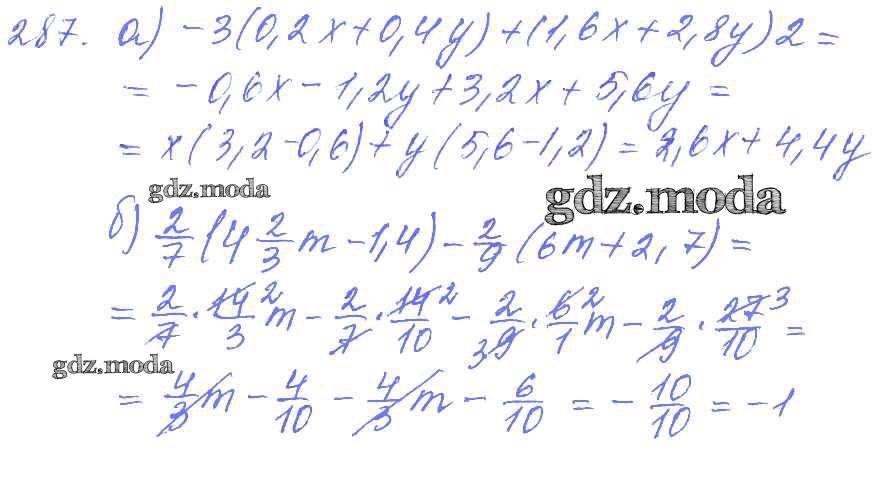 287. а) -3(0,2x+0,4y)+(1,6x+2,8y)2=
= -0,6x-1,2y+3,2x+5,6y=
= x(3,2-0,6)+y(5,6-1,2)=2,6x+4,4y
gdz.moda
gdz.moda
б) 2/7(4 2/3m-1,4)-2/9(6m+2,7)=
= 2/7·14²/3m-2/7·14²/10-2/₃9·6²/1m-2/9·27³/10=
gdz.moda
= 4/3m-4/10-4/3m-6/10=-10/10=-1